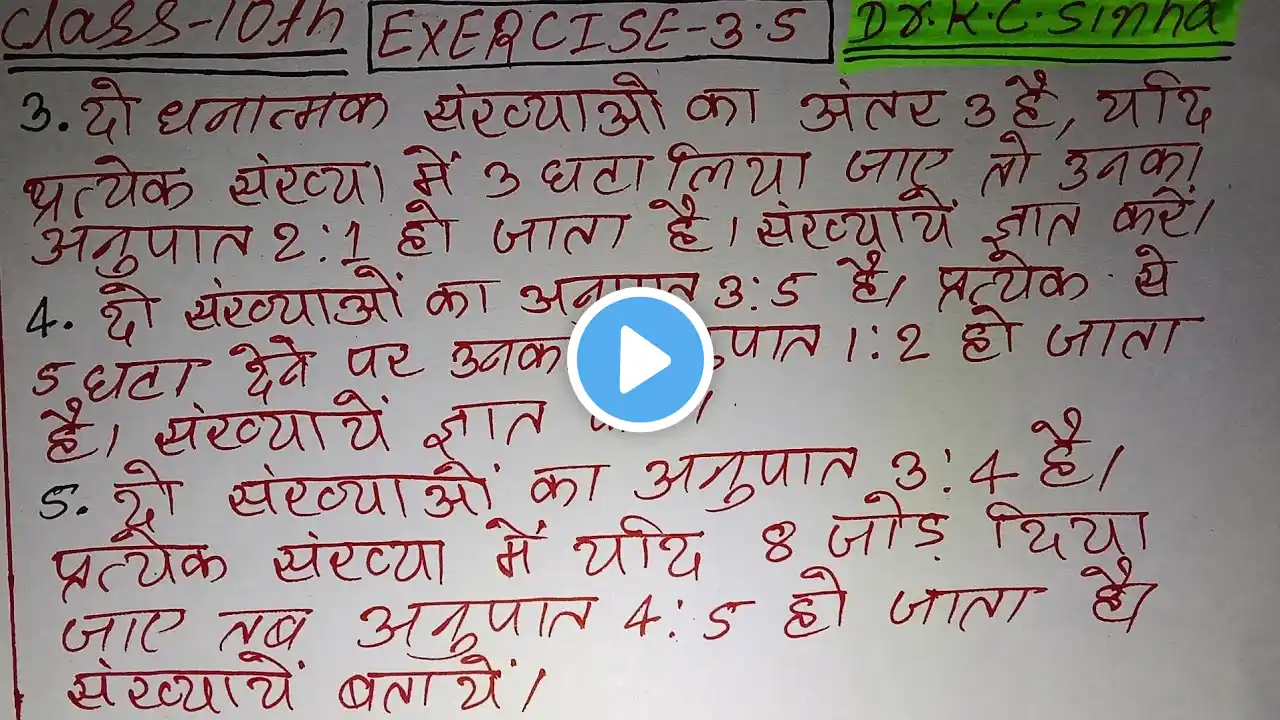 Class-10th EXERCISE-3.5 Dr.K.C.Sinha
3. दो धनात्मक संख्याओं का अंतर 3 है, यदि
प्रत्येक संख्या में 3 घटा लिया जाए तो उनका
अनुपात 2:1 हो जाता है। संख्यायें ज्ञात करें।
4. दो संख्याओं का अनुपात 3:5 है। प्रत्येक से
5 घटा देने पर उनका 1:2 हो जाता
है। संख्यायें ज्ञात
5. दो संख्याओं का अनुपात 3:4 है।
प्रत्येक संख्या में यदि 8 जोड़ दिया
जाए तब अनुपात 4:5 हो जाता है।
संख्यायें बतायें।